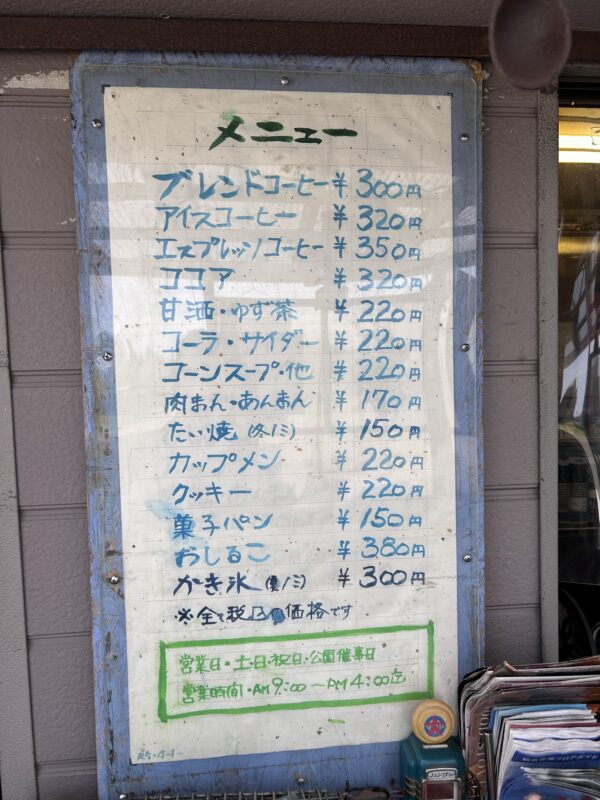 メニュー
ブレンドコーヒー ¥ 300円
アイスコーヒー ¥ 320円
エスプレッソコーヒー ¥ 350円
ココア ¥ 320円
甘酒・ゆず茶 ¥ 220円
コーラ・サイダー ¥ 220円
コーンスープ・他 ¥ 220円
肉まん・あんまん ¥ 170円
たい焼(冬ノミ) ¥ 150円
カップメン ¥ 220円
クッキー ¥ 220円
菓子パン ¥ 150円
おしるこ ¥ 380円
かき氷(夏ノミ) ¥ 300円
※全て税込の価格です
営業日・土・日・祝日・公園催事日
営業時間・AM9:00〜PM4:00迄
R5・4・1〜